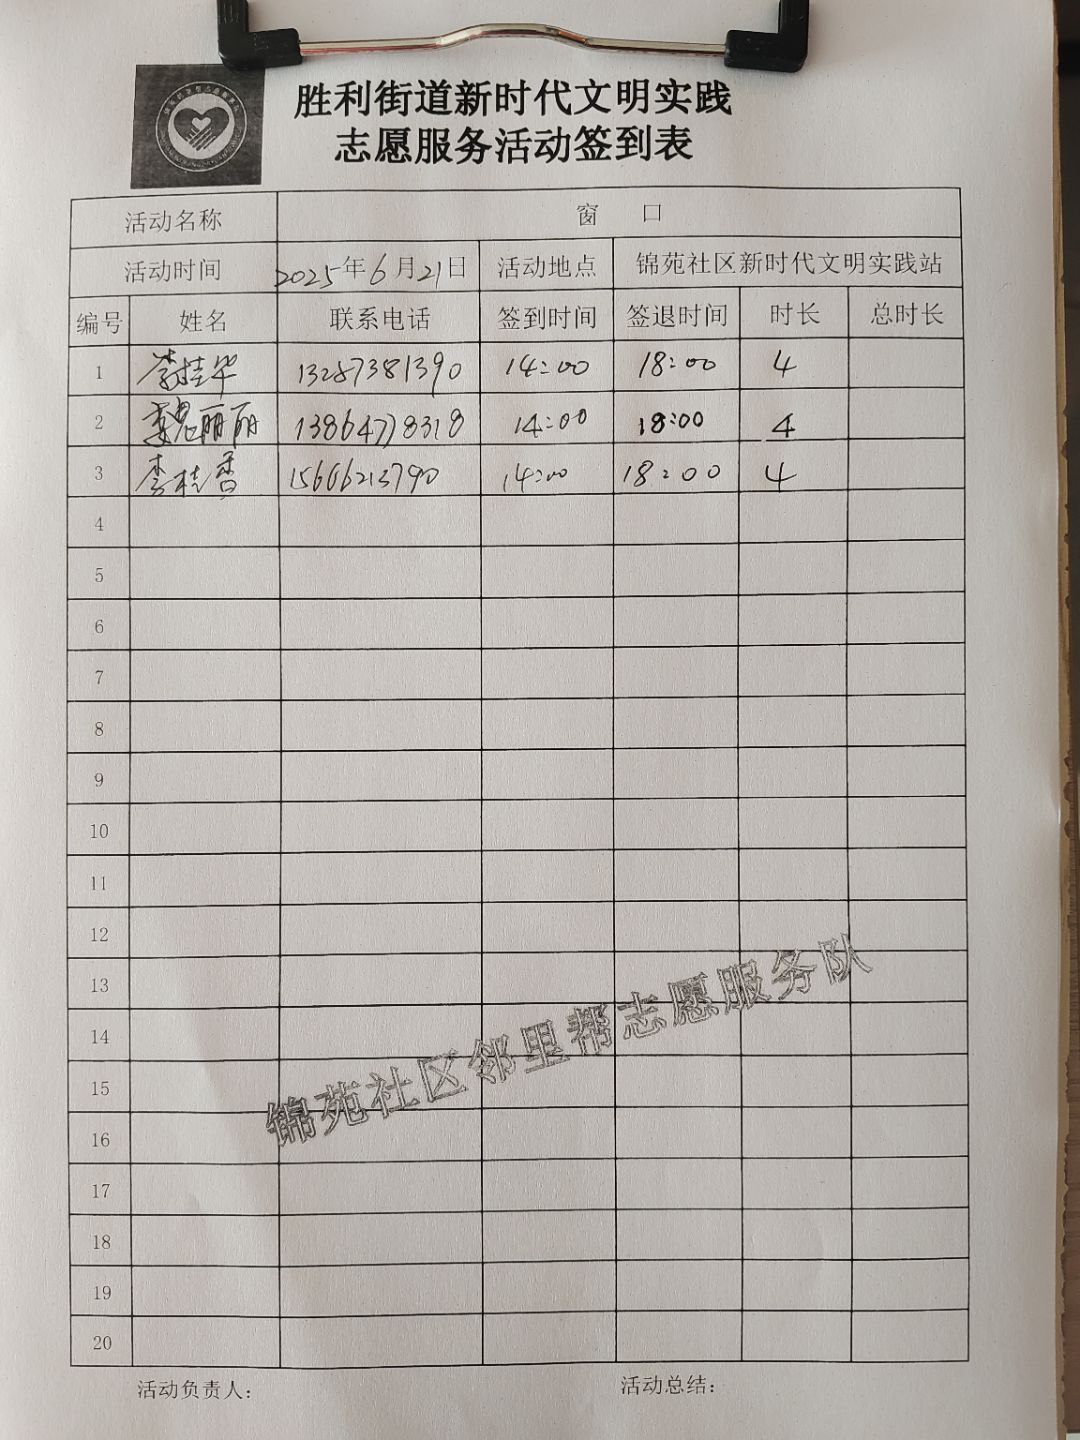 胜利街道新时代文明实践
志愿服务活动签到表
活动名称 窗 口
活动时间 2025年6月21日 活动地点 锦苑社区新时代文明实践站
编号 姓名 联系电话 签到时间 签退时间 时长 总时长
1 桂华 13287381390 14:00 18:00 4
2 丽丽 13864778318 14:00 18:00 4
3 李桂香 15666213790 14:00 18:00 4
4
5
6
7
8
9
10
11
12
13
14
15
16
17
18
19
20
锦苑社区邻里帮志愿服务队
活动负责人: 活动总结: